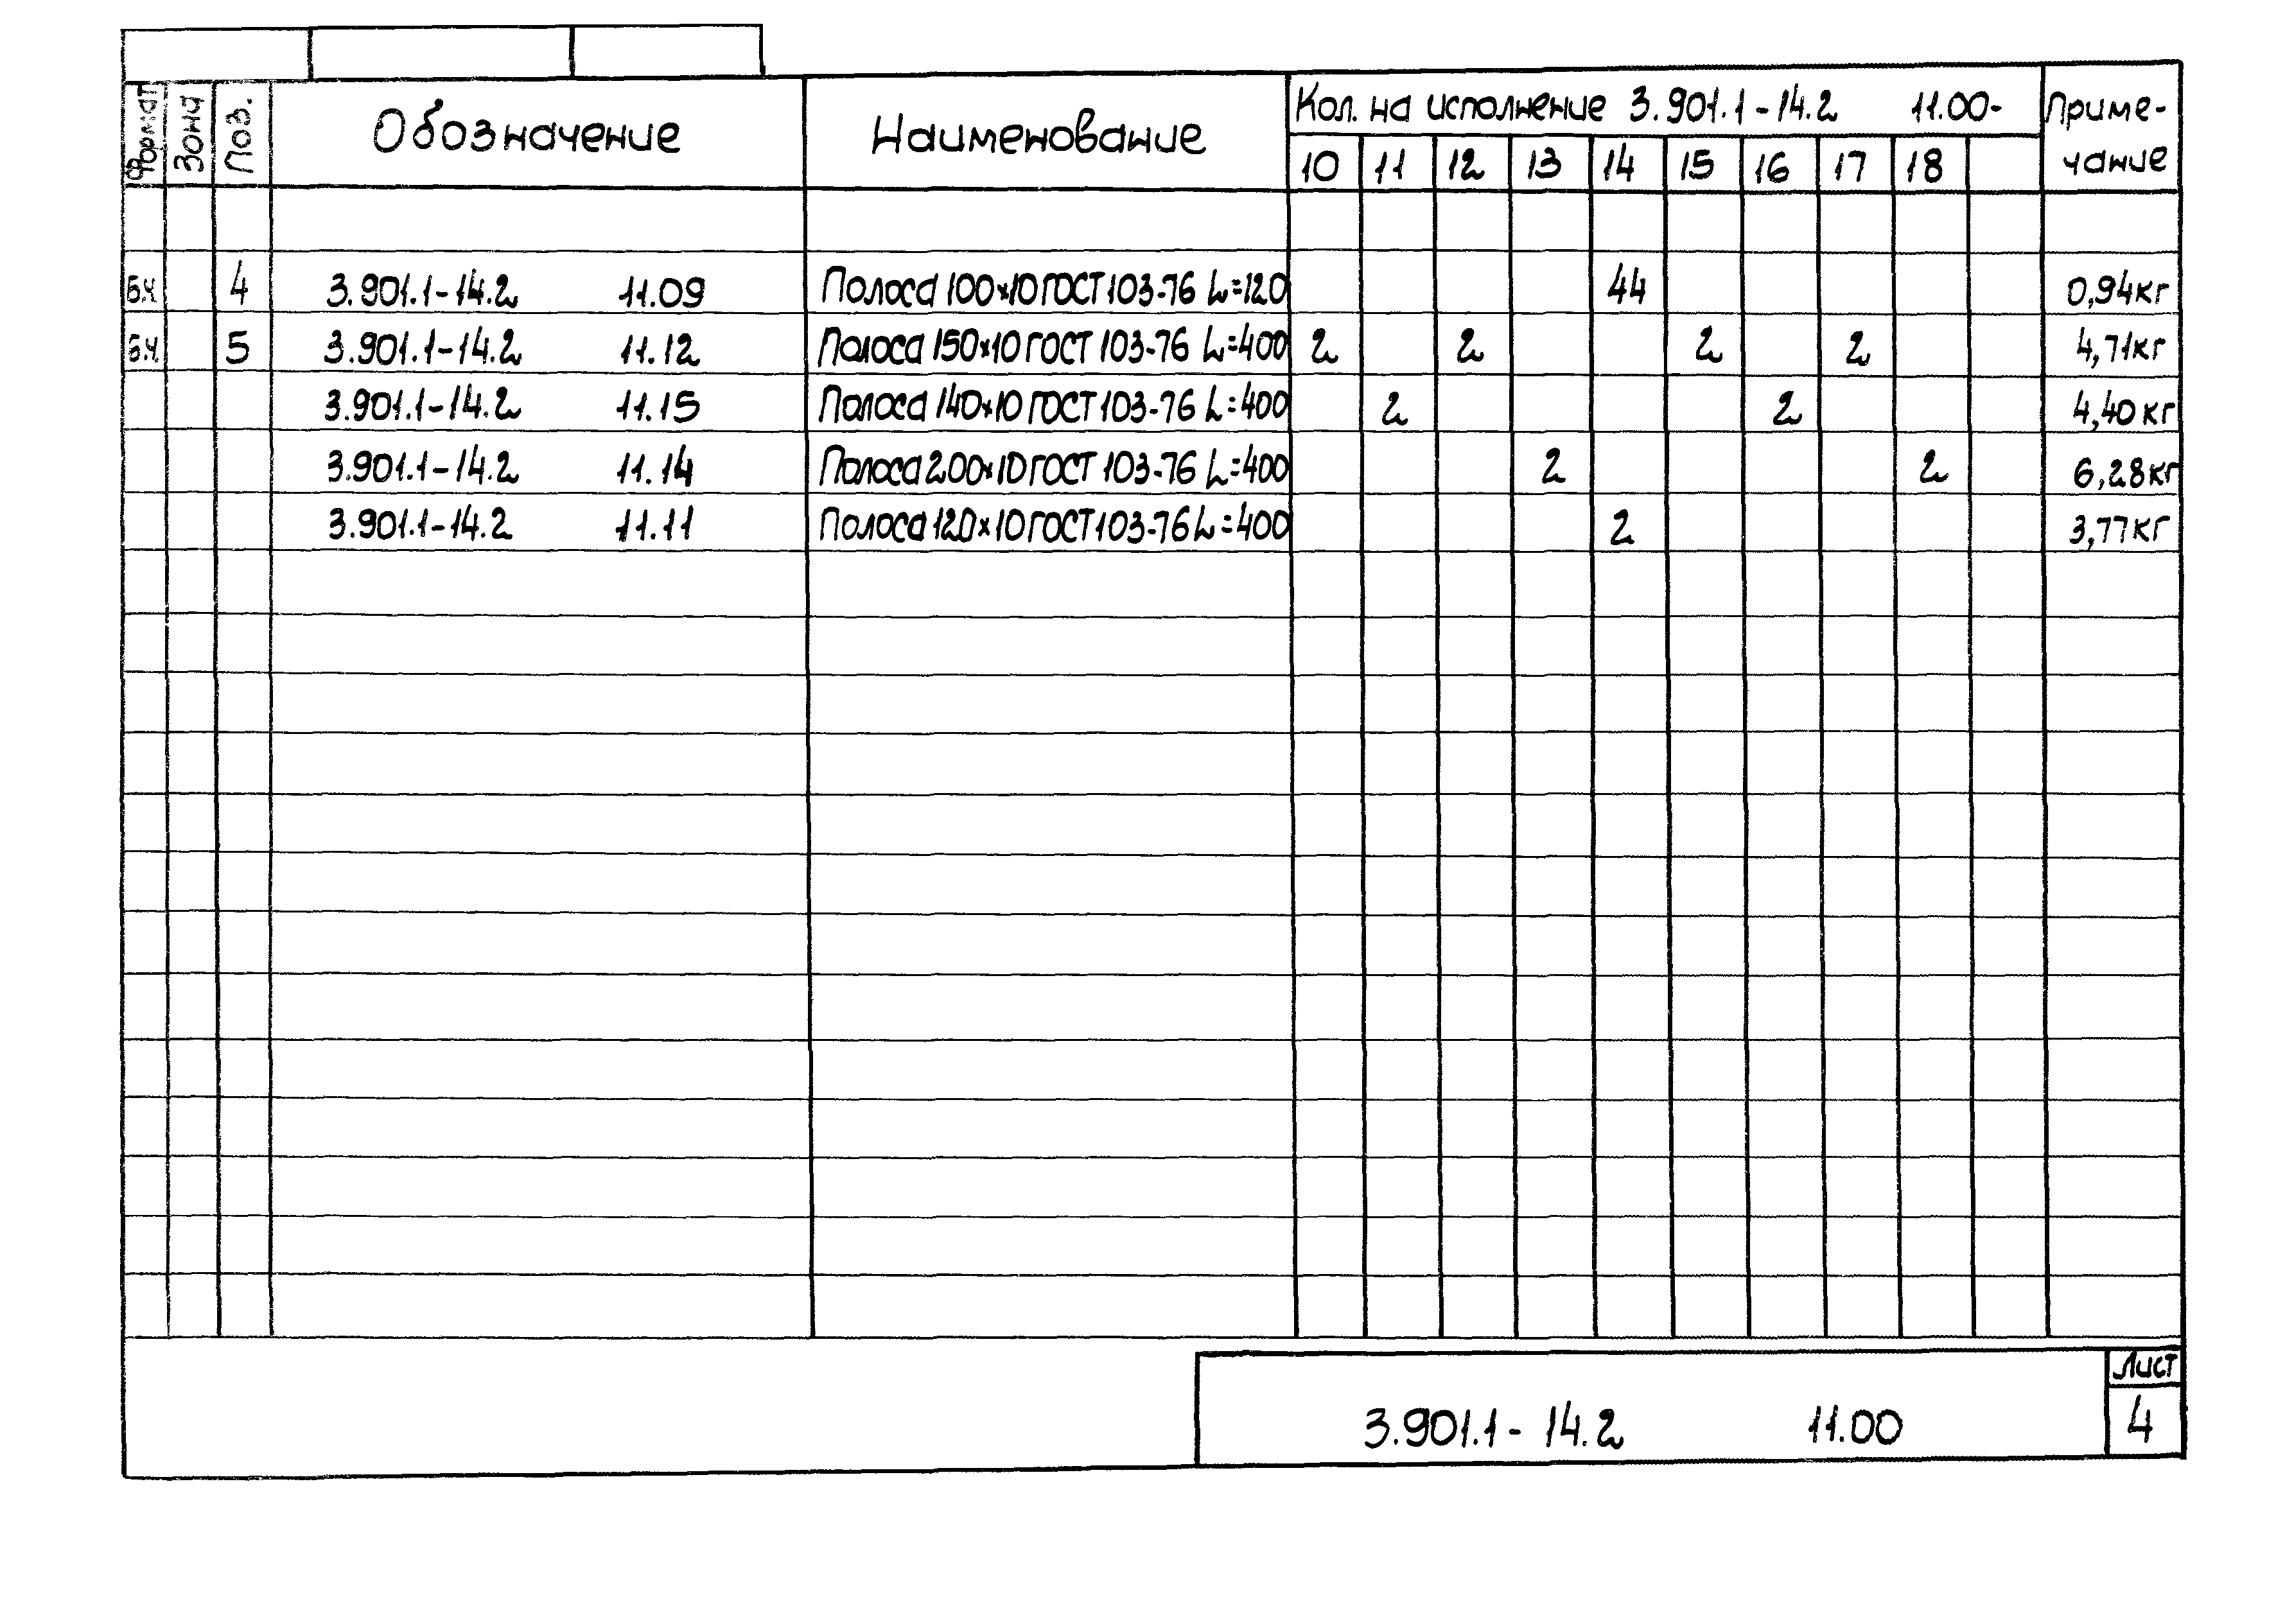 Формат Зона Поз. Обозначение Наименование Кол. на исполнение 3.901.1-14.2 11.00- Приме-
чание
10 11 12 13 14 15 16 17 18
Б.Ч. 4 3.901.1-14.2 11.09 Полоса 100×10 ГОСТ 103-76 L=120 44 0,94кг
Б.Ч. 5 3.901.1-14.2 11.12 Полоса 150×10 ГОСТ 103-76 L=400 2 2 2 2 4,71кг
3.901.1-14.2 11.15 Полоса 140×10 ГОСТ 103-76 L=400 2 2 4,40кг
3.901.1-14.2 11.14 Полоса 200×10 ГОСТ 103-76 L=400 2 2 6,28кг
3.901.1-14.2 11.11 Полоса 120×10 ГОСТ 103-76 L=400 2 3,77кг
Лист
3.901.1-14.2 11.00 4